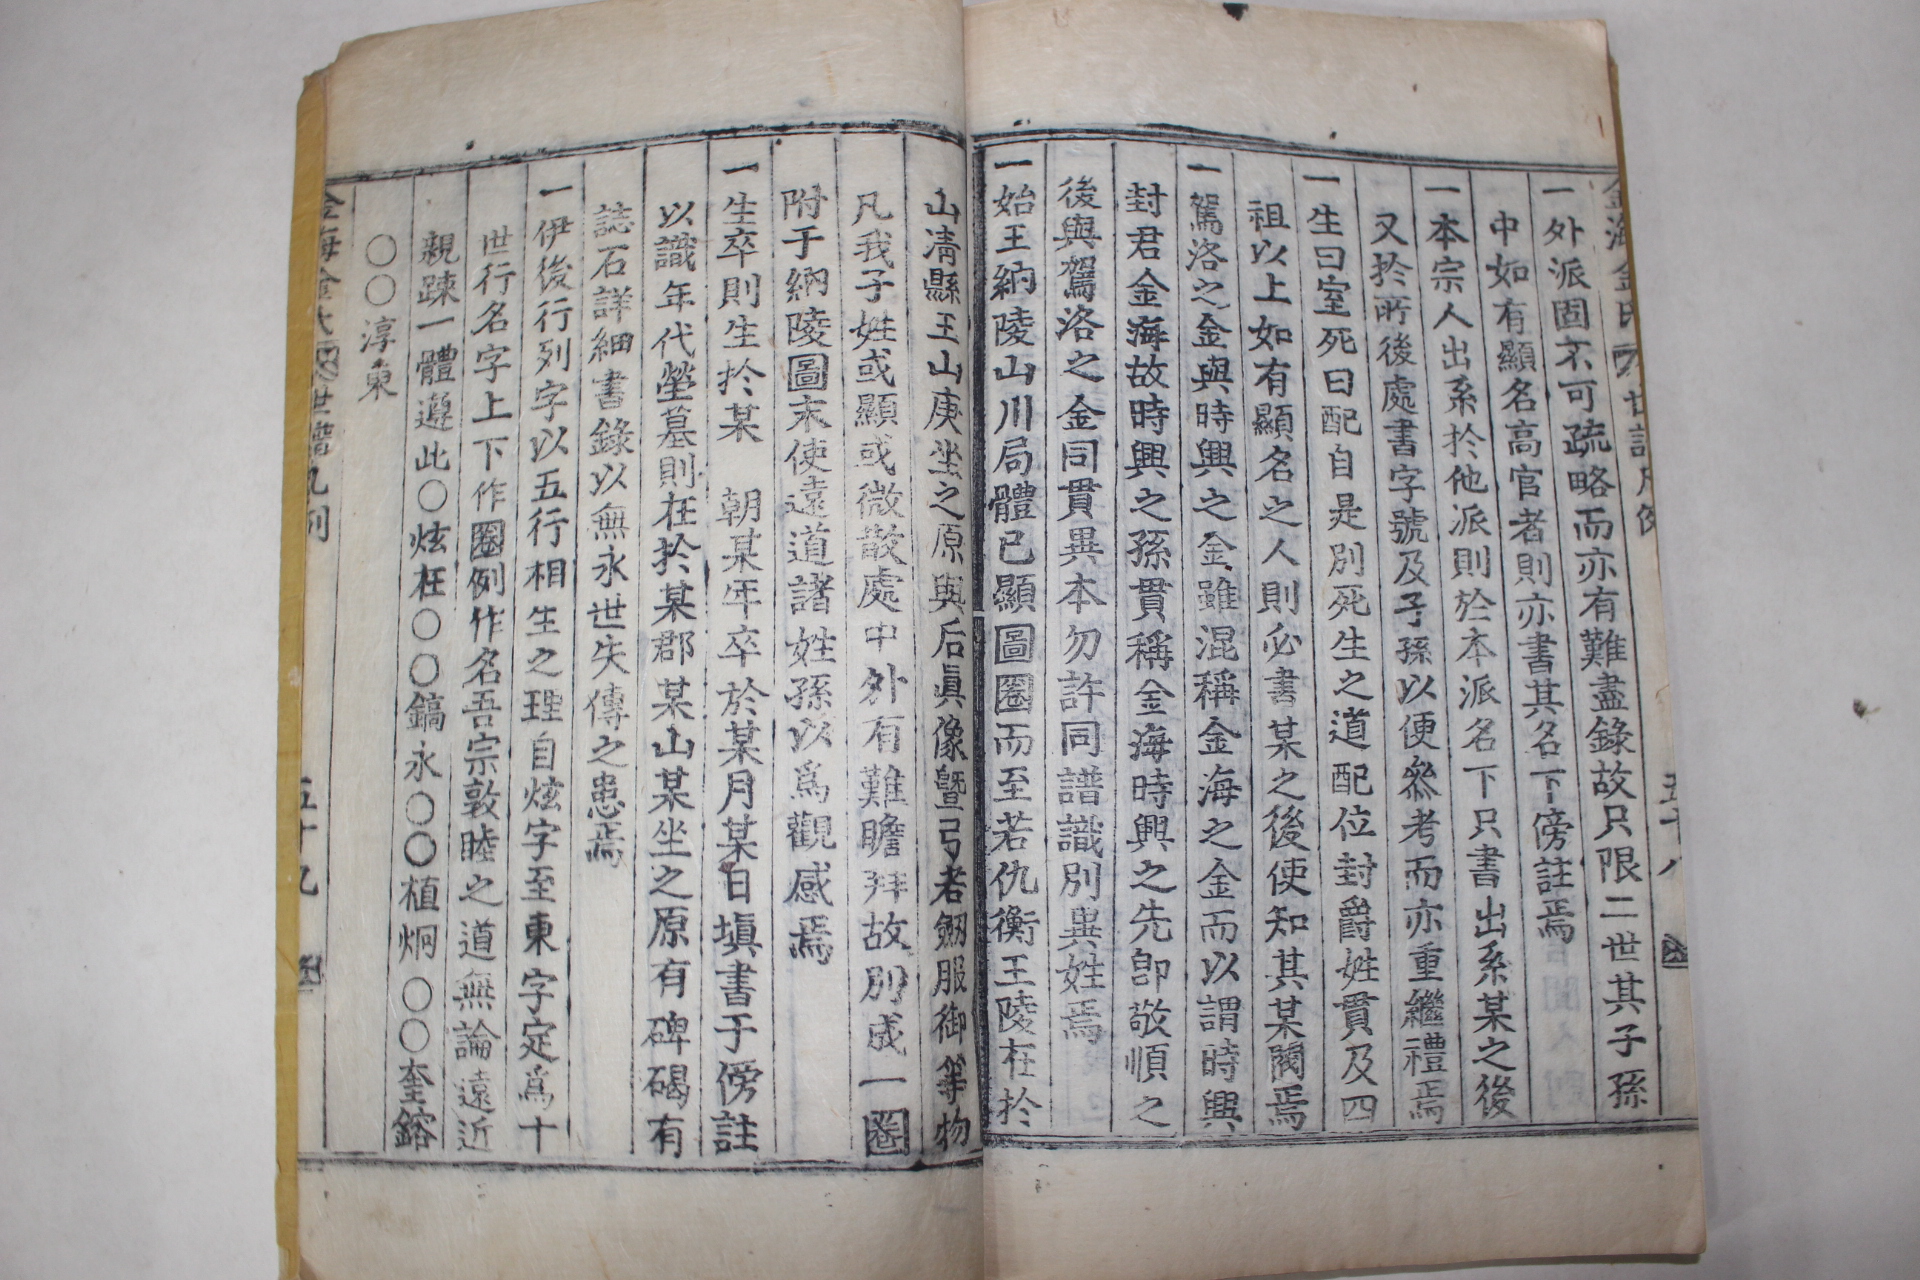 一外派固不可疏略而亦有難盡錄故只限二世其子孫
中如有顯名高官者則亦書其名下傍註焉
一本宗人出系於他派則於本派名下只書出系某之後
又於所後處書字號及子孫以便叅考而亦重繼禮焉
一生曰室死曰配自是別死生之道配位封爵姓貫及四
祖以上如有顯名之人則必書某之後使知其某閥焉
一駕洛之金與時興之金雖混稱金海之金而以謂時興
封君金海故時興之孫貫稱金海時興之先卽敬順之
後與駕洛之金同貫異本勿許同譜識別異姓焉
一始王納陵山川局體已顯圖圈而至若仇衡王陵在於
山淸縣王山庚坐之原與后眞像曁弓者劒服御等物
凡我子姓或顯或微散處中外有難瞻拜故別成一圈
附于納陵圖末使遠道諸姓孫以爲觀感焉
一生卒則生於某 朝某年卒於某月某日塡書于傍註
以識年代塋墓則在於某郡某山某坐之原有碑碣有
誌石詳細書錄以無永世失傳之患焉
一伊後行列字以五行相生之理自炫字至東字定爲十
世行名字上下作圈例作名吾宗敦睦之道無論遠近
親踈一體遵此〇炫在〇〇鎬永〇〇植炯〇〇奎鎔
〇〇淳東
五十九